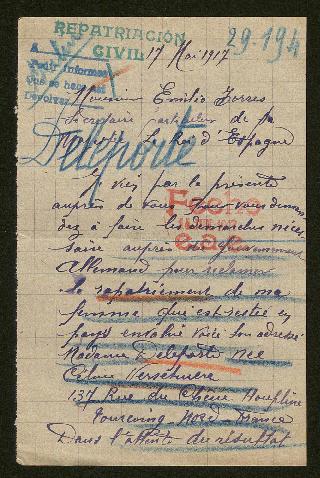 REPATRIACIÓN
CIVIL
29-194
17 Mai 1917
Pedir informes
que se hace así
Devolver
Monsieur Emilio Torres
Secrétaire particulier de sa
Majesté Le Roi d'Espagne
Deleporte
Je viens par la présente
auprès de vous pour vous deman
dez à faire les démarches néces
saire auprès du gouvernement
Allemand pour réclamer
le rapatriement de ma
femme qui est restée en
pays envahie voici son adresse
Madame Deleporte née
Céline Verschuere
137 Rue du Chêne Houpline
Tourcoing Nord France
Dans l'attente du résultat
Fecho